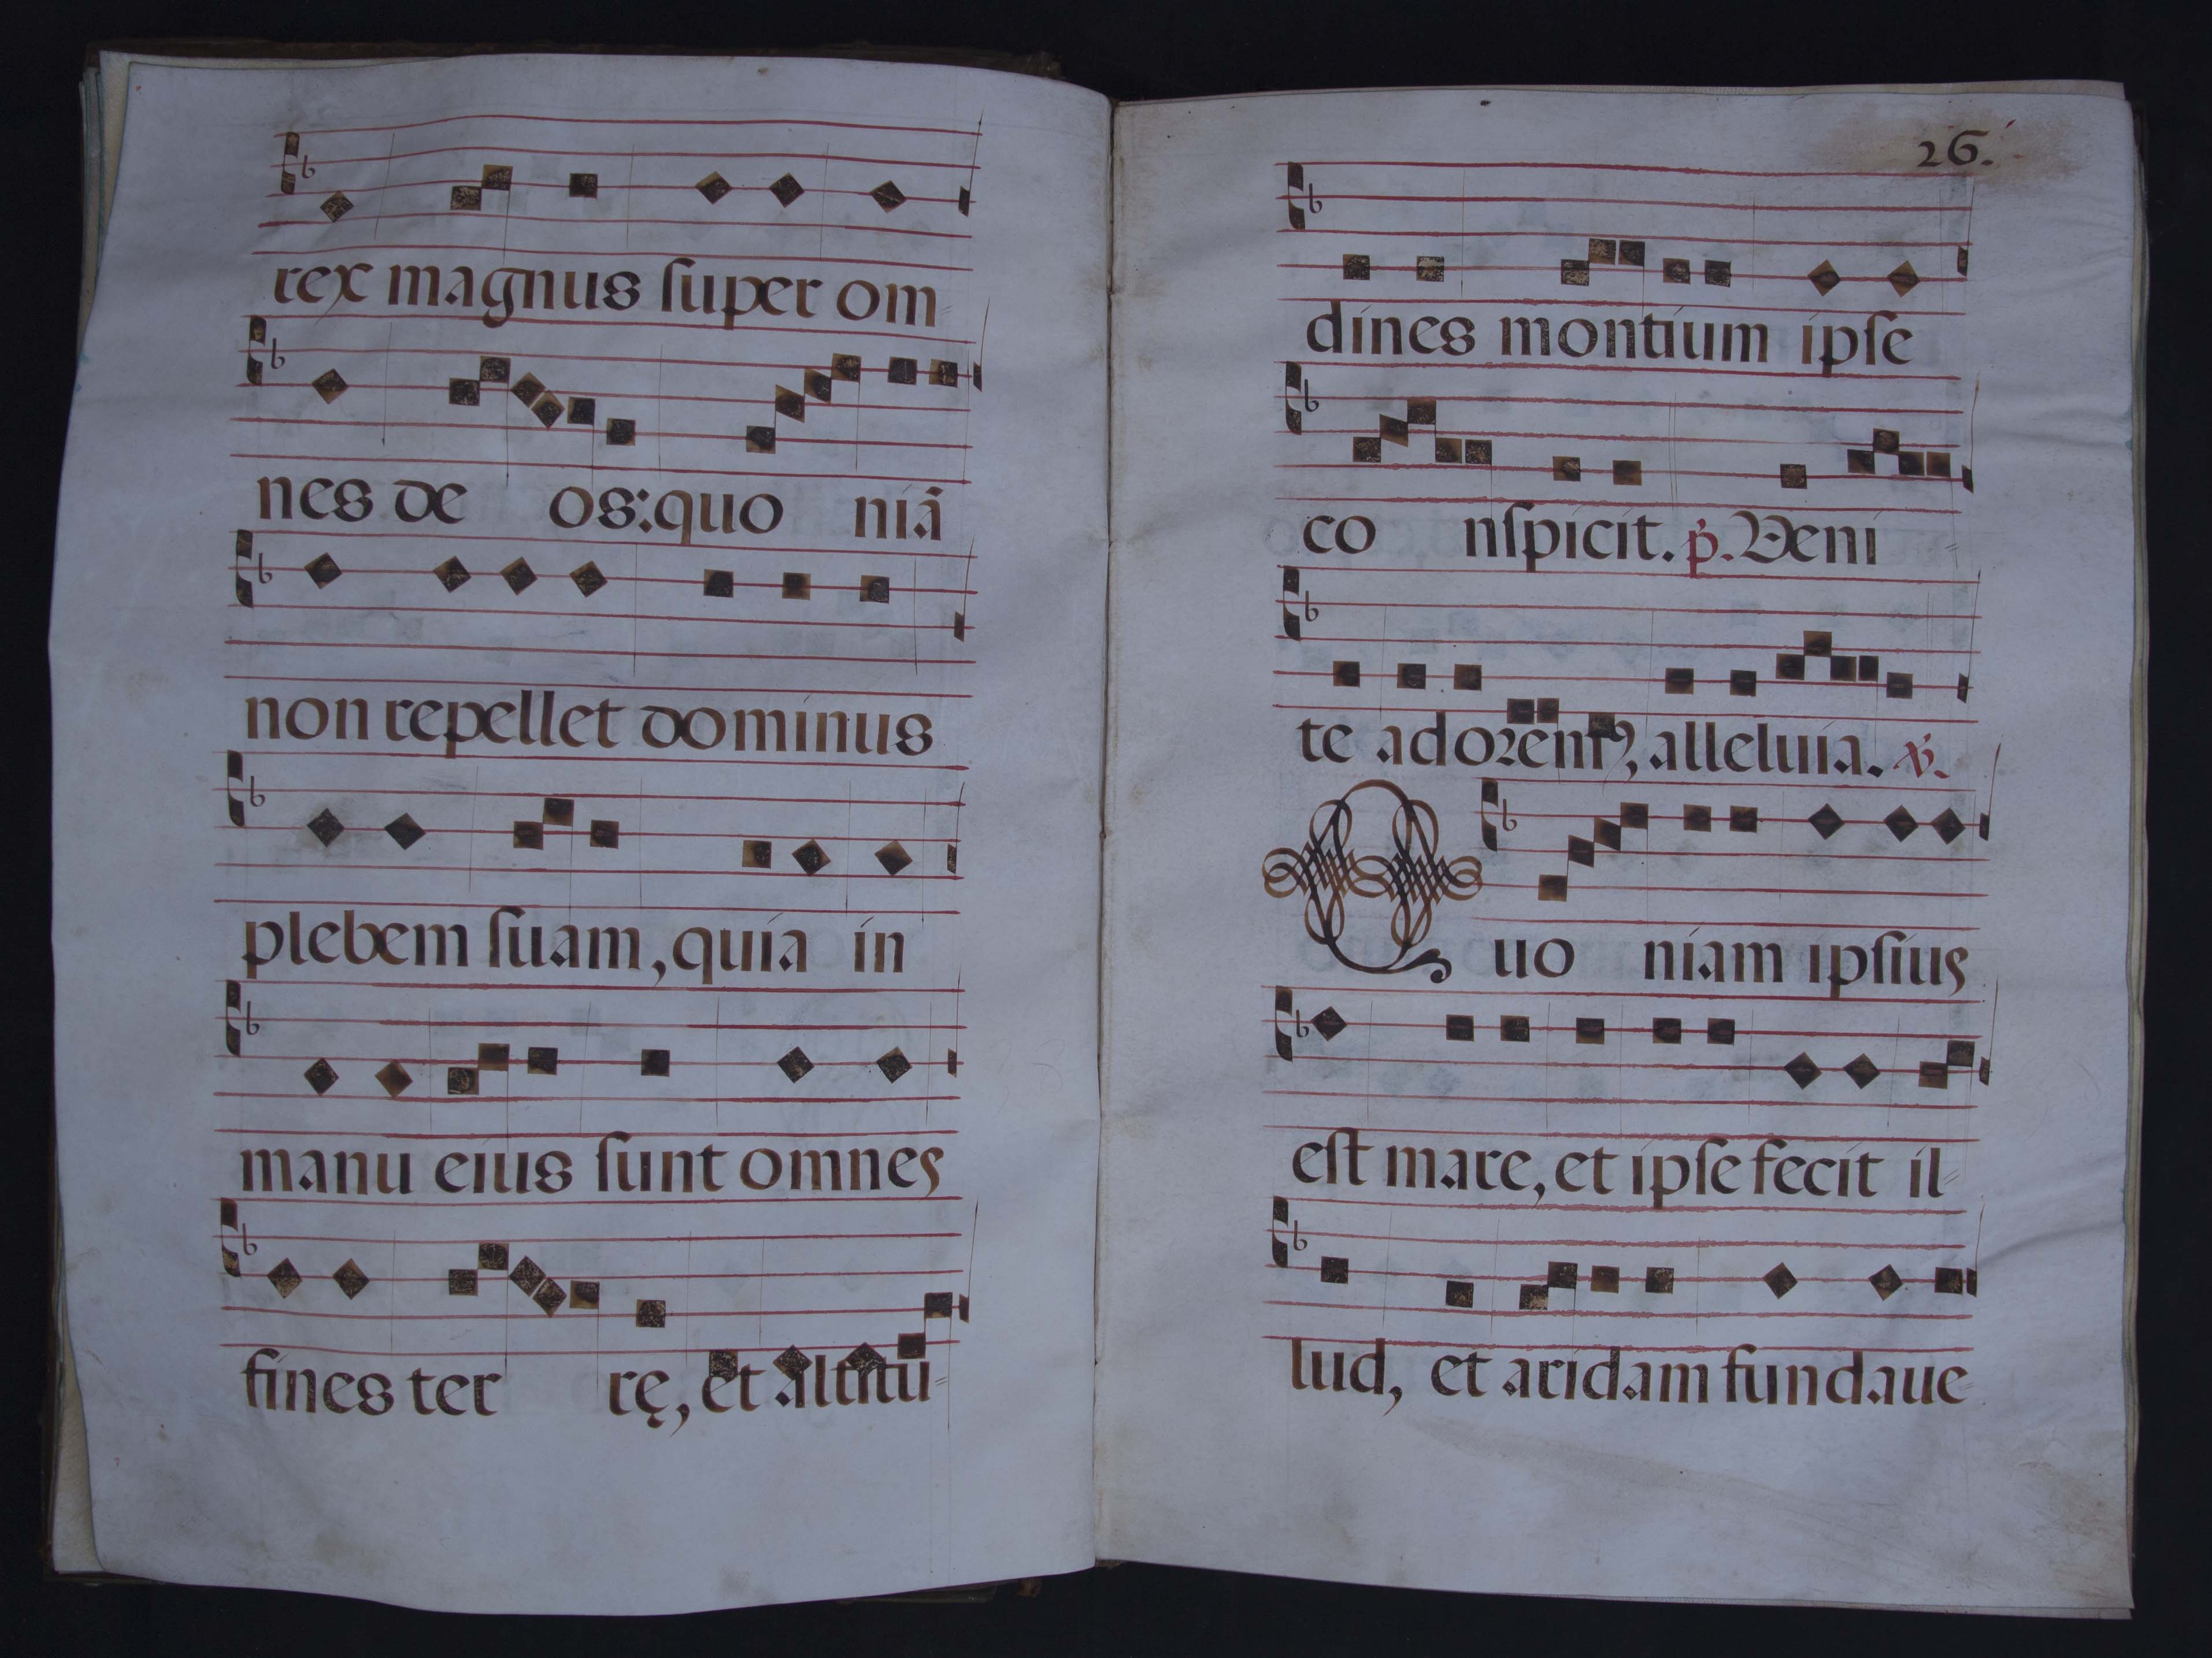 rex magnus ſuper om⸗
nes de os: quo niã
non repellet dominus
plebem ſuam, quia in
manu eius ſunt omnes
fines ter rę, et altitu⸗
26.
dines montium ipſe
co nſpicit. p̃. Veni⸗
te adoremꝰ, alleluia. ℣.
Quo niam ipſius
eſt mare, et ipſe fecit il⸗
lud, et aridam fundaue⸗